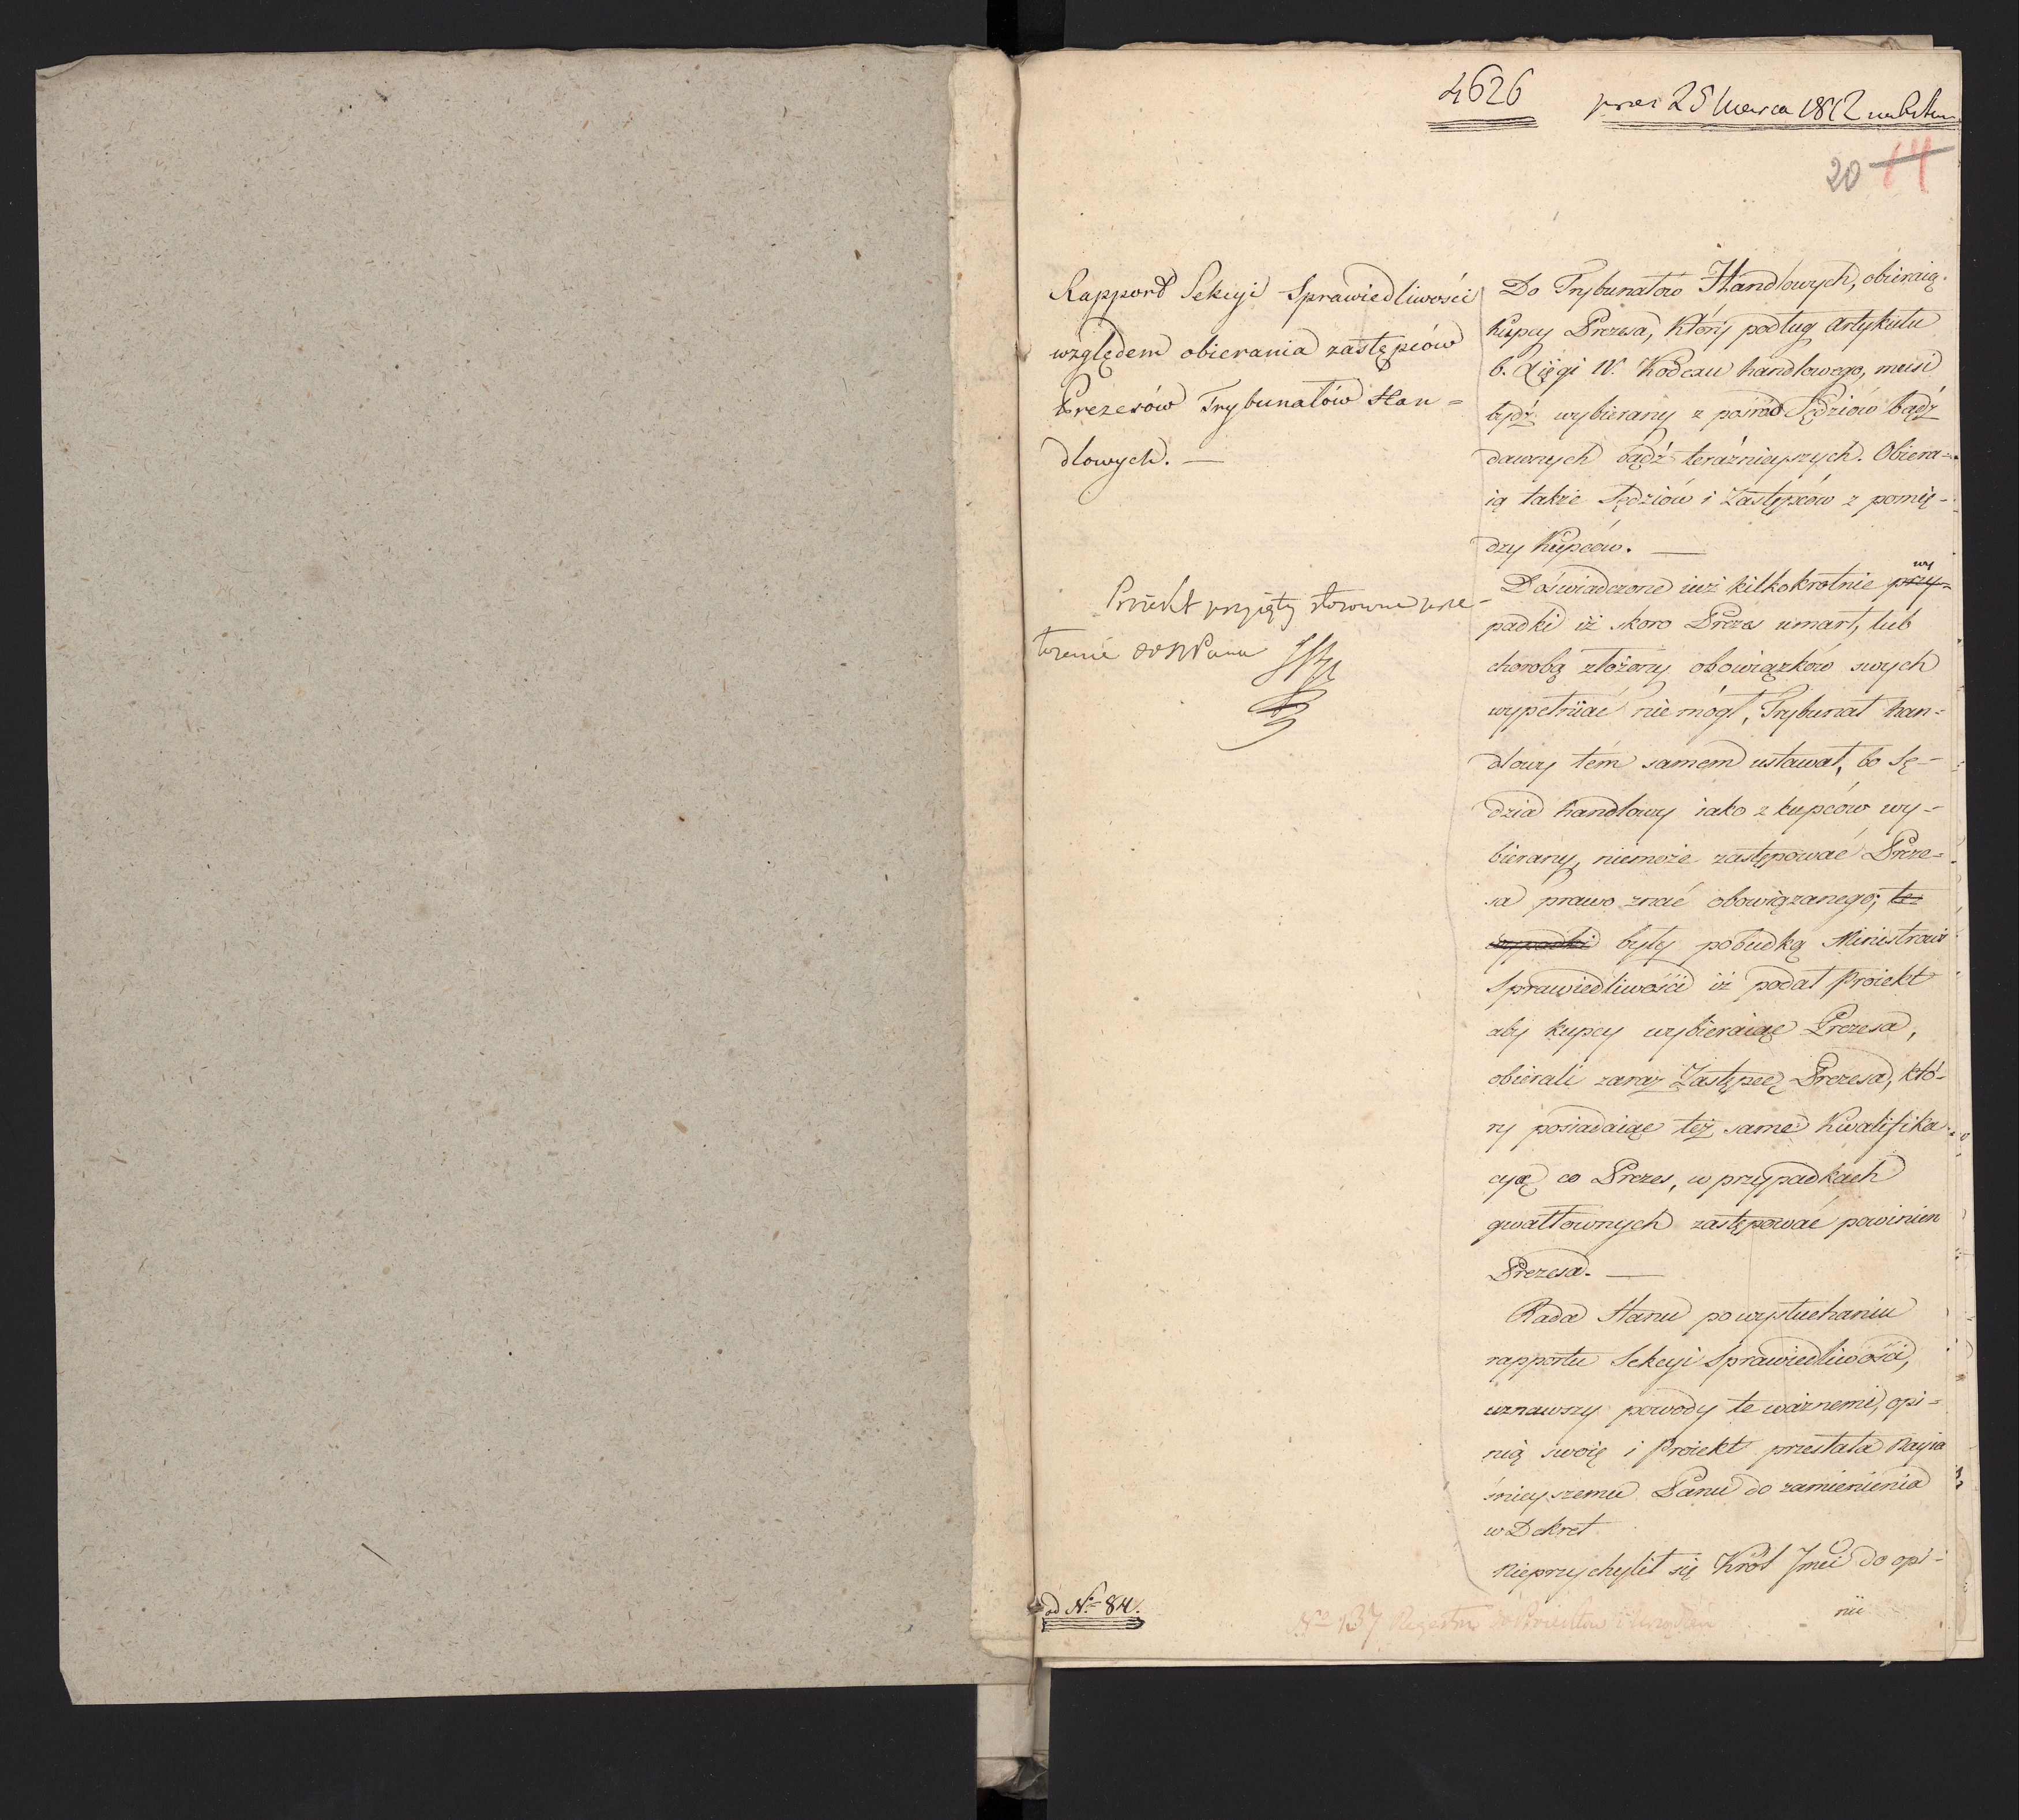 4626
pres 25 Marca 1812
20 14
Rapport Sekcyi Sprawiedliwości
względem obierania zastępców
Prezesów Trybunałów Han=
dlowych. —
Proiekt przyięty stosownie
ad N° 84.
Do Trybunałów Handlowych, obieraią
kupcy Prezesa, który podług artykułu
6. Xięgi IV. Kodexu handlowego, musi
bydź wybierany z pośród Sędziów bądź
dawnych bądź teraźnieyszych. Obiera=
ią także Sędziów i Zastępców z pomię-
dzy Kupców. —
Doświadczone iuż kilkokrotnie przy= wy
padki iż skoro Prezes umarł, lub
chorobą złożony obowiązków swych
wypełniać niemógł, Trybunał han=
dlowy tém samem ustawał, bo Sę-
dzia handlowy iako z kupców wy-
bierany, niemoże zastępować Preze=
sa prawo znać obowiązanego; te
wypadki były pobudką Ministrowi
Sprawiedliwości iż podał Proiekt
aby kupcy wybieraiąc Prezesa,
obierali zaraz Zastępcę Prezesa, któ-
ry posiadaiąc też same Kwalifika=
cyą co Prezes, w przypadkach
gwałtownych zastępować powinien
Prezesa. —
Rada Stanu po wysłuchaniu
rapportu Sekcyi Sprawiedliwości,
uznawszy powody te ważnemi, opi=
nią swoię i Proiekt przesłała Nayia
śnieyszemu Panu do zamienienia
w Dekret
Nieprzychylił się Król Jmci do opi-
nii
N° 137